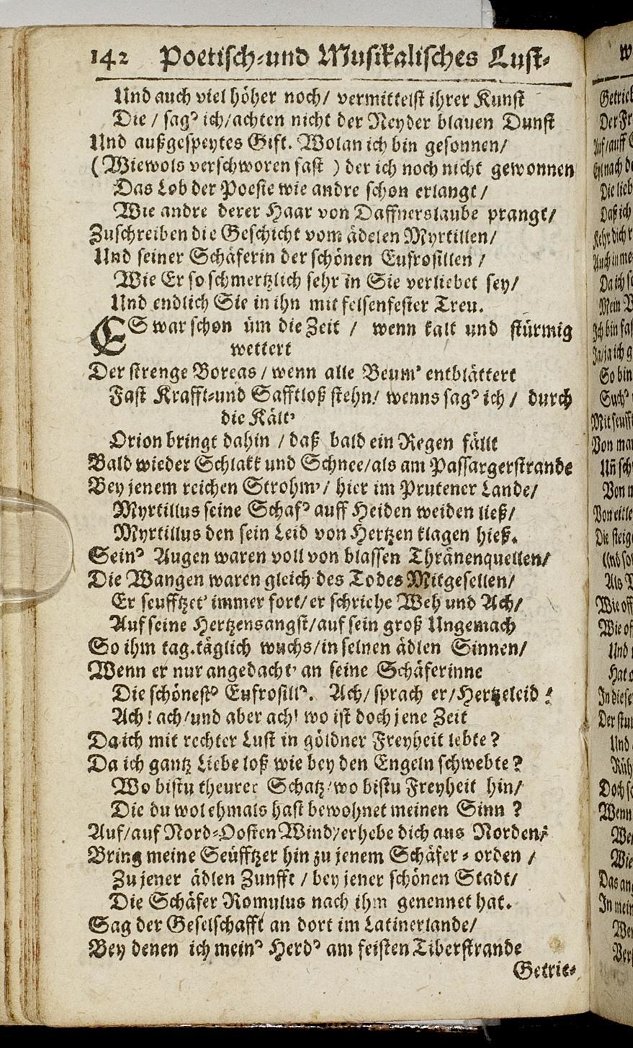 142 Poetisch-und Musikalisches Lust-
Und auch viel höher noch/ vermittelst ihrer Kunst
Die / sag' ich/achten nicht der Neyder blauen Dunst
Und außgespeytes Gift. Wolan ich bin gesonnen/
( Wiewols verschworen fast ) der ich noch nicht gewonnen
Das Lob der Poesie wie andre schon erlangt/
Wie andre derer Haar von Daffnerslaube prangt/
Zuschreiben die Geschicht vom ädelen Myrtillen/
Und seiner Schäferin der schönen Eufrosillen /
Wie Er so schmertzlich sehr in Sie verliebet sey/
Und endlich Sie in ihn mit felsenfester Treu.
ES war schon üm die Zeit / wenn kalt und stürmig
wettert
Der strenge Boreas/ wenn alle Beum' entblättert
Fast Krafft-und Safftloß stehn/ wenns sag' ich / durch
die Kält'
Orion bringt dahin / daß bald ein Regen fällt
Bald wieder Schlakk und Schnee/als am Passargerstrande
Bey jenem reichen Strohm'/ hier im Prutener Lande/
Myrtillus seine Schaf' auff Heiden weiden ließ/
Myrtillus den sein Leid von Hertzen klagen hieß.
Sein' Augen waren voll von blassen Thränenquellen/
Die Wangen waren gleich des Todes Mitgesellen/
Er seufftzet' immer fort/er schriehe Weh und Ach/
Auf seine Hertzensangst/auf sein groß Ungemach
So ihm tag-täglich wuchs/in seinen ädlen Sinnen/
Wenn er nur angedacht' an seine Schäferinne
Die schönest' Eufrosill'. Ach/ sprach er/Hertzeleid !
Ach! ach/und aber ach! wo ist doch jene Zeit
Da ich mit rechter Lust in göldner Freyheit lebte?
Da ich gantz Liebe loß wie bey den Engeln schwebte?
Wo bistu theurer Schatz/wo bistu Freyheit hin/
Die du wol ehmals hast bewohnet meinen Sinn ?
Auf/auf Nord-Oosten Wind/erhebe dich aus Norden/
Bring meine Seüfftzer hin zu jenem Schäfer-orden /
Zu jener ädlen Zunfft / bey jener schönen Stadt/
Die Schäfer Romulus nach ihm genennet hat.
Sag der Geselschafft an dort im Latinerlande/
Bey denen ich mein' Herd' am feisten Tiberstrande
Getrie-